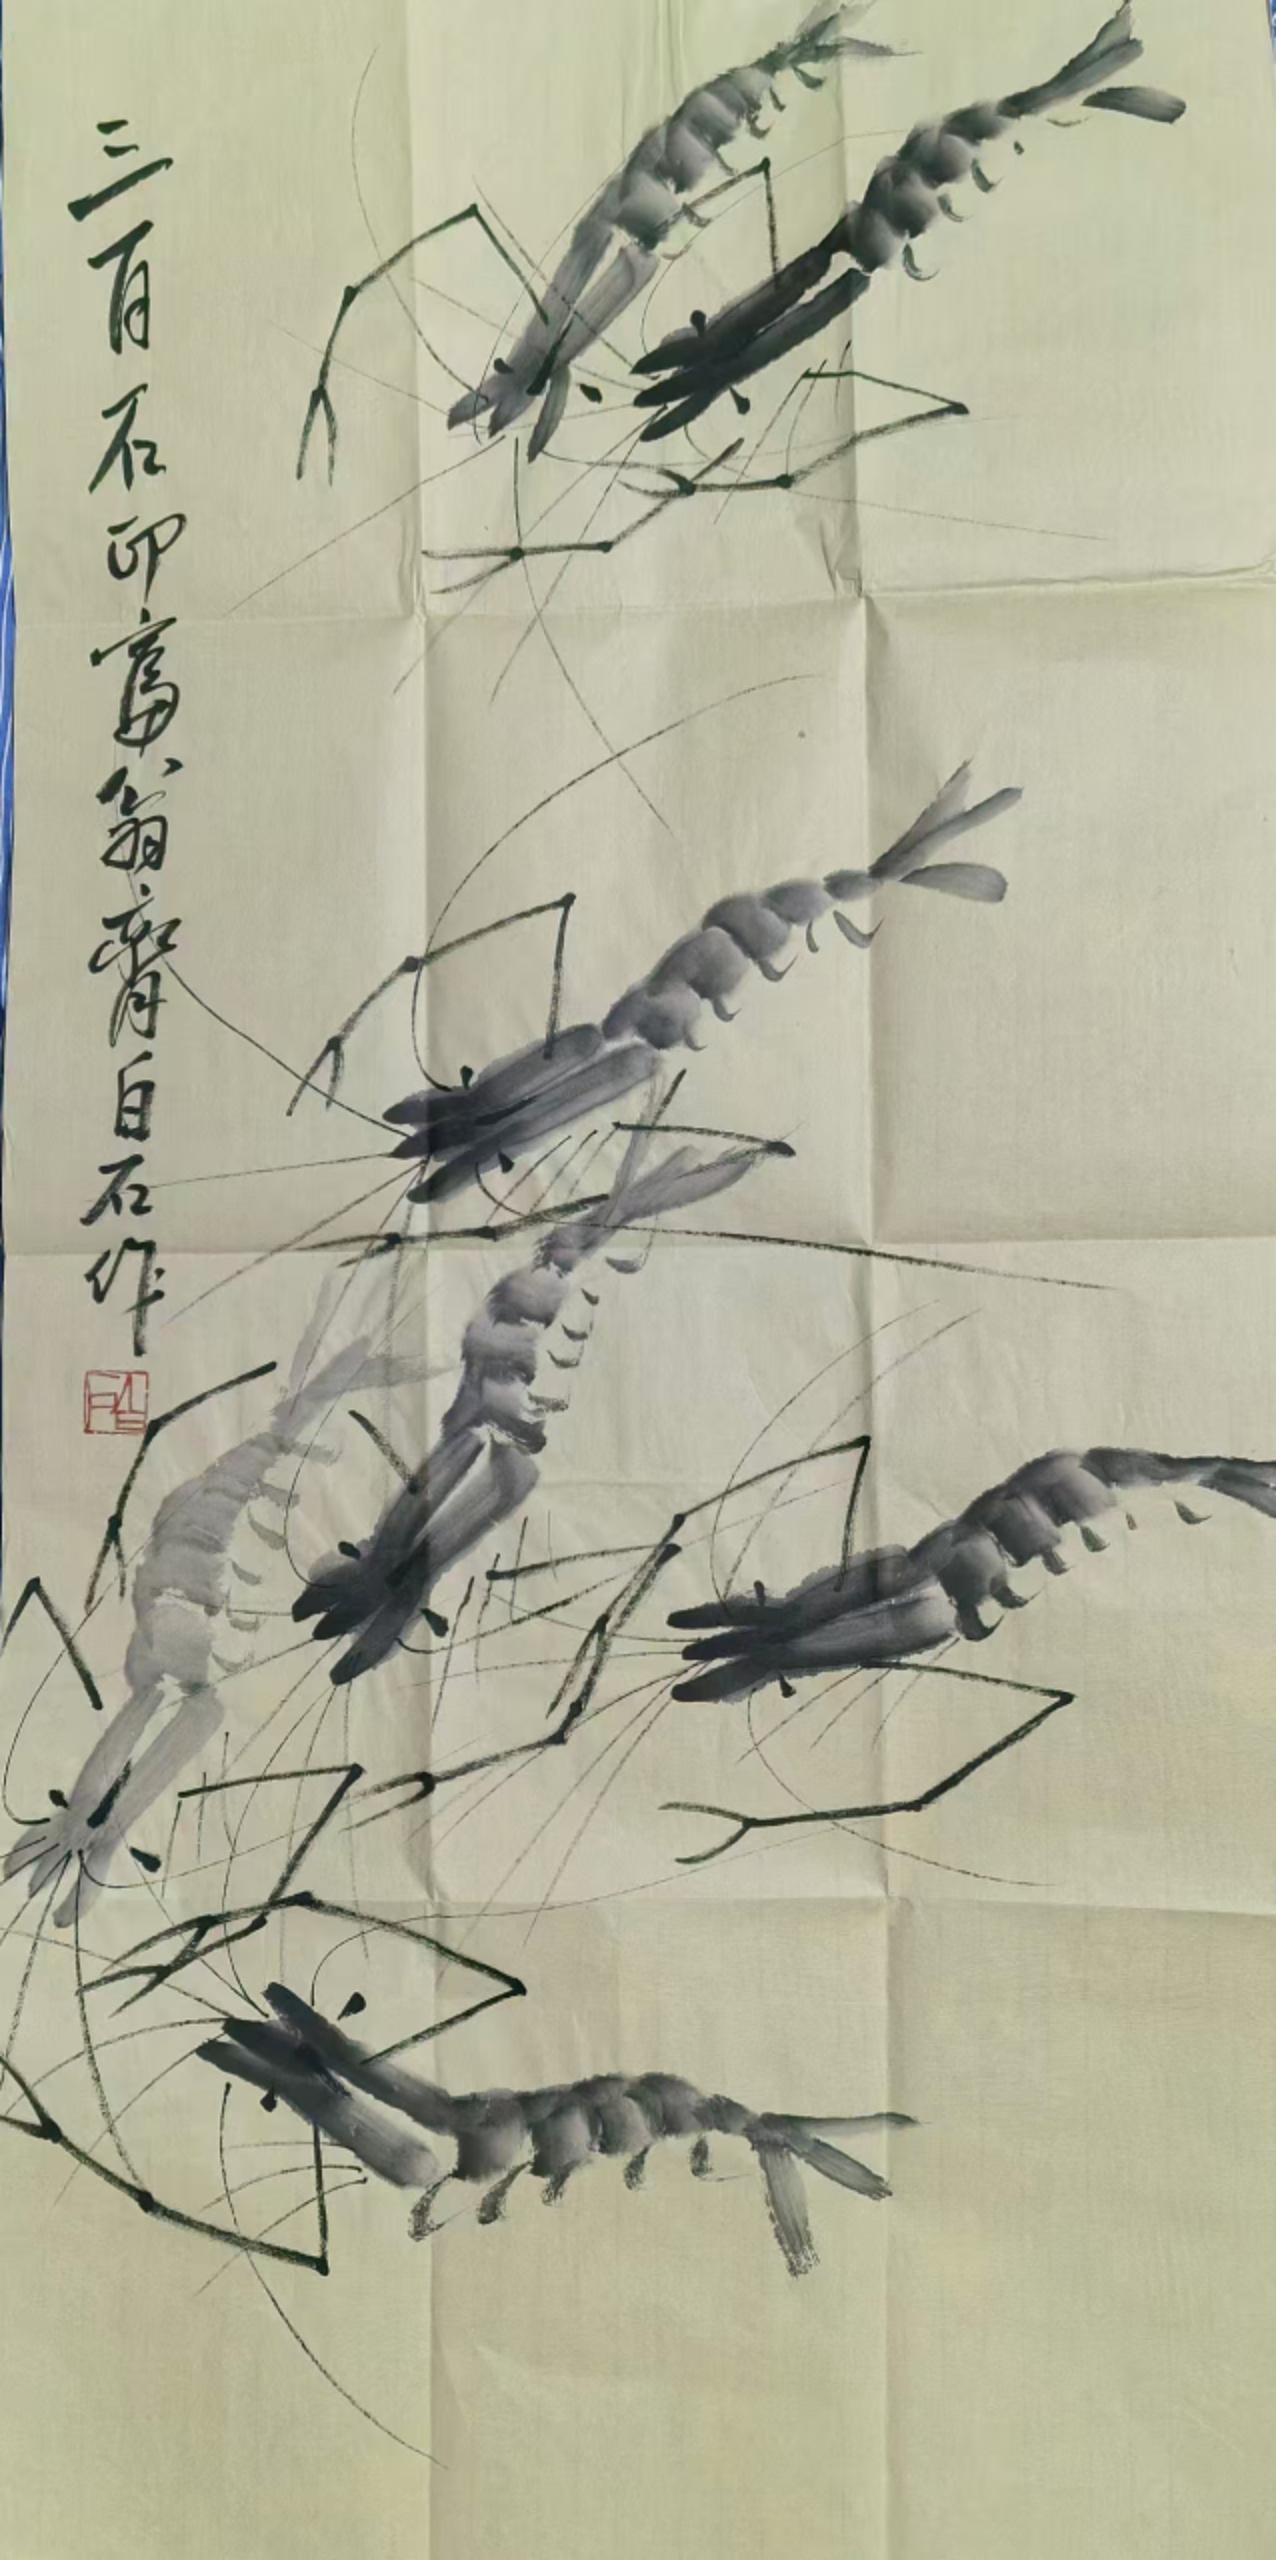 三百石印富翁齊白石作